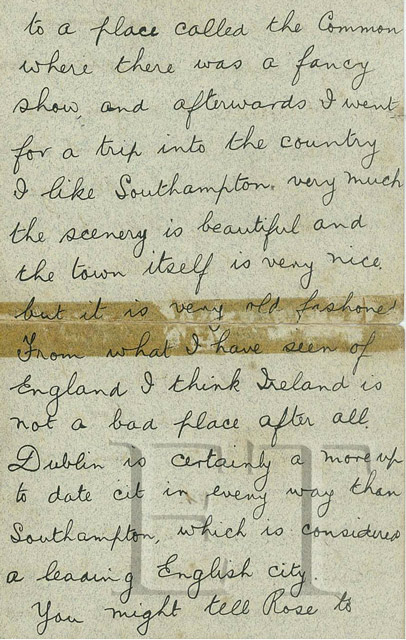 to a place called the Common
where there was a fancy
show, and afterwards I went
for a trip into the country
I like Southampton. very much
the scenery is beautiful and
the town itself is very nice.
but it is very old fashoned
From what I have seen of
England I think Ireland is
not a bad place after all.
Dublin is certainly a more up
to date cit in eveny way than
Southampton, which is considered
a leading English city.
You might tell Rose to
ET